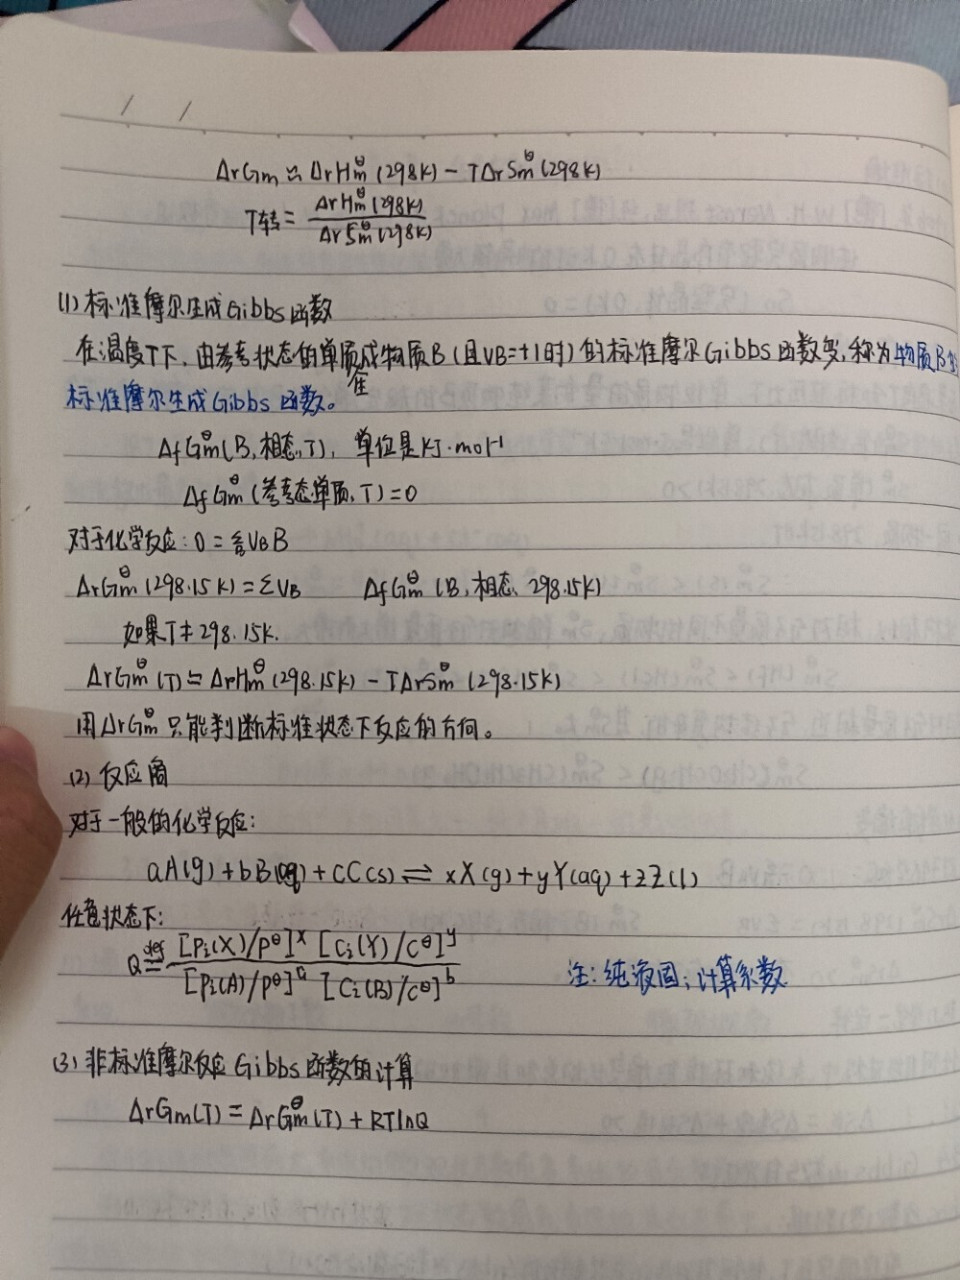 ΔrGm ≈ ΔrHm^θ(298K) - TΔrSm^θ(298K)
T转 = ΔrHm^θ(298K) / ΔrSm^θ(298K)
(1) 标准摩尔生成Gibbs函数
在温度T下,由参考状态的单质生成物质B(且VB=+1时)的标准摩尔Gibbs函数变,称为物质B的
标准摩尔生成Gibbs函数。
ΔfGm^θ(B,相态,T),单位是kJ·mol-1
ΔfGm^θ(参考态单质,T)=0
对于化学反应:0=ΣVB B
ΔrGm^θ(298.15K)=ΣVB ΔfGm^θ(B,相态,298.15K)
如果T≠298.15K.
ΔrGm^θ(T)≈ΔrHm^θ(298.15K)-TΔrSm^θ(298.15K)
用ΔrGm^θ只能判断标准状态下反应的方向。
(2) 反应商
对于一般的化学反应:
aA(g)+bB(aq)+cC(s)⇌xX(g)+yY(aq)+zZ(l)
任意状态下:
Q def= [Pi(X)/P^θ]^x [Ci(Y)/C^θ]^y / [Pi(A)/P^θ]^a [Ci(B)/C^θ]^b
注:纯液固;计算系数
(3) 非标准摩尔反应Gibbs函数的计算
ΔrGm(T)=ΔrGm^θ(T)+RTlnQ